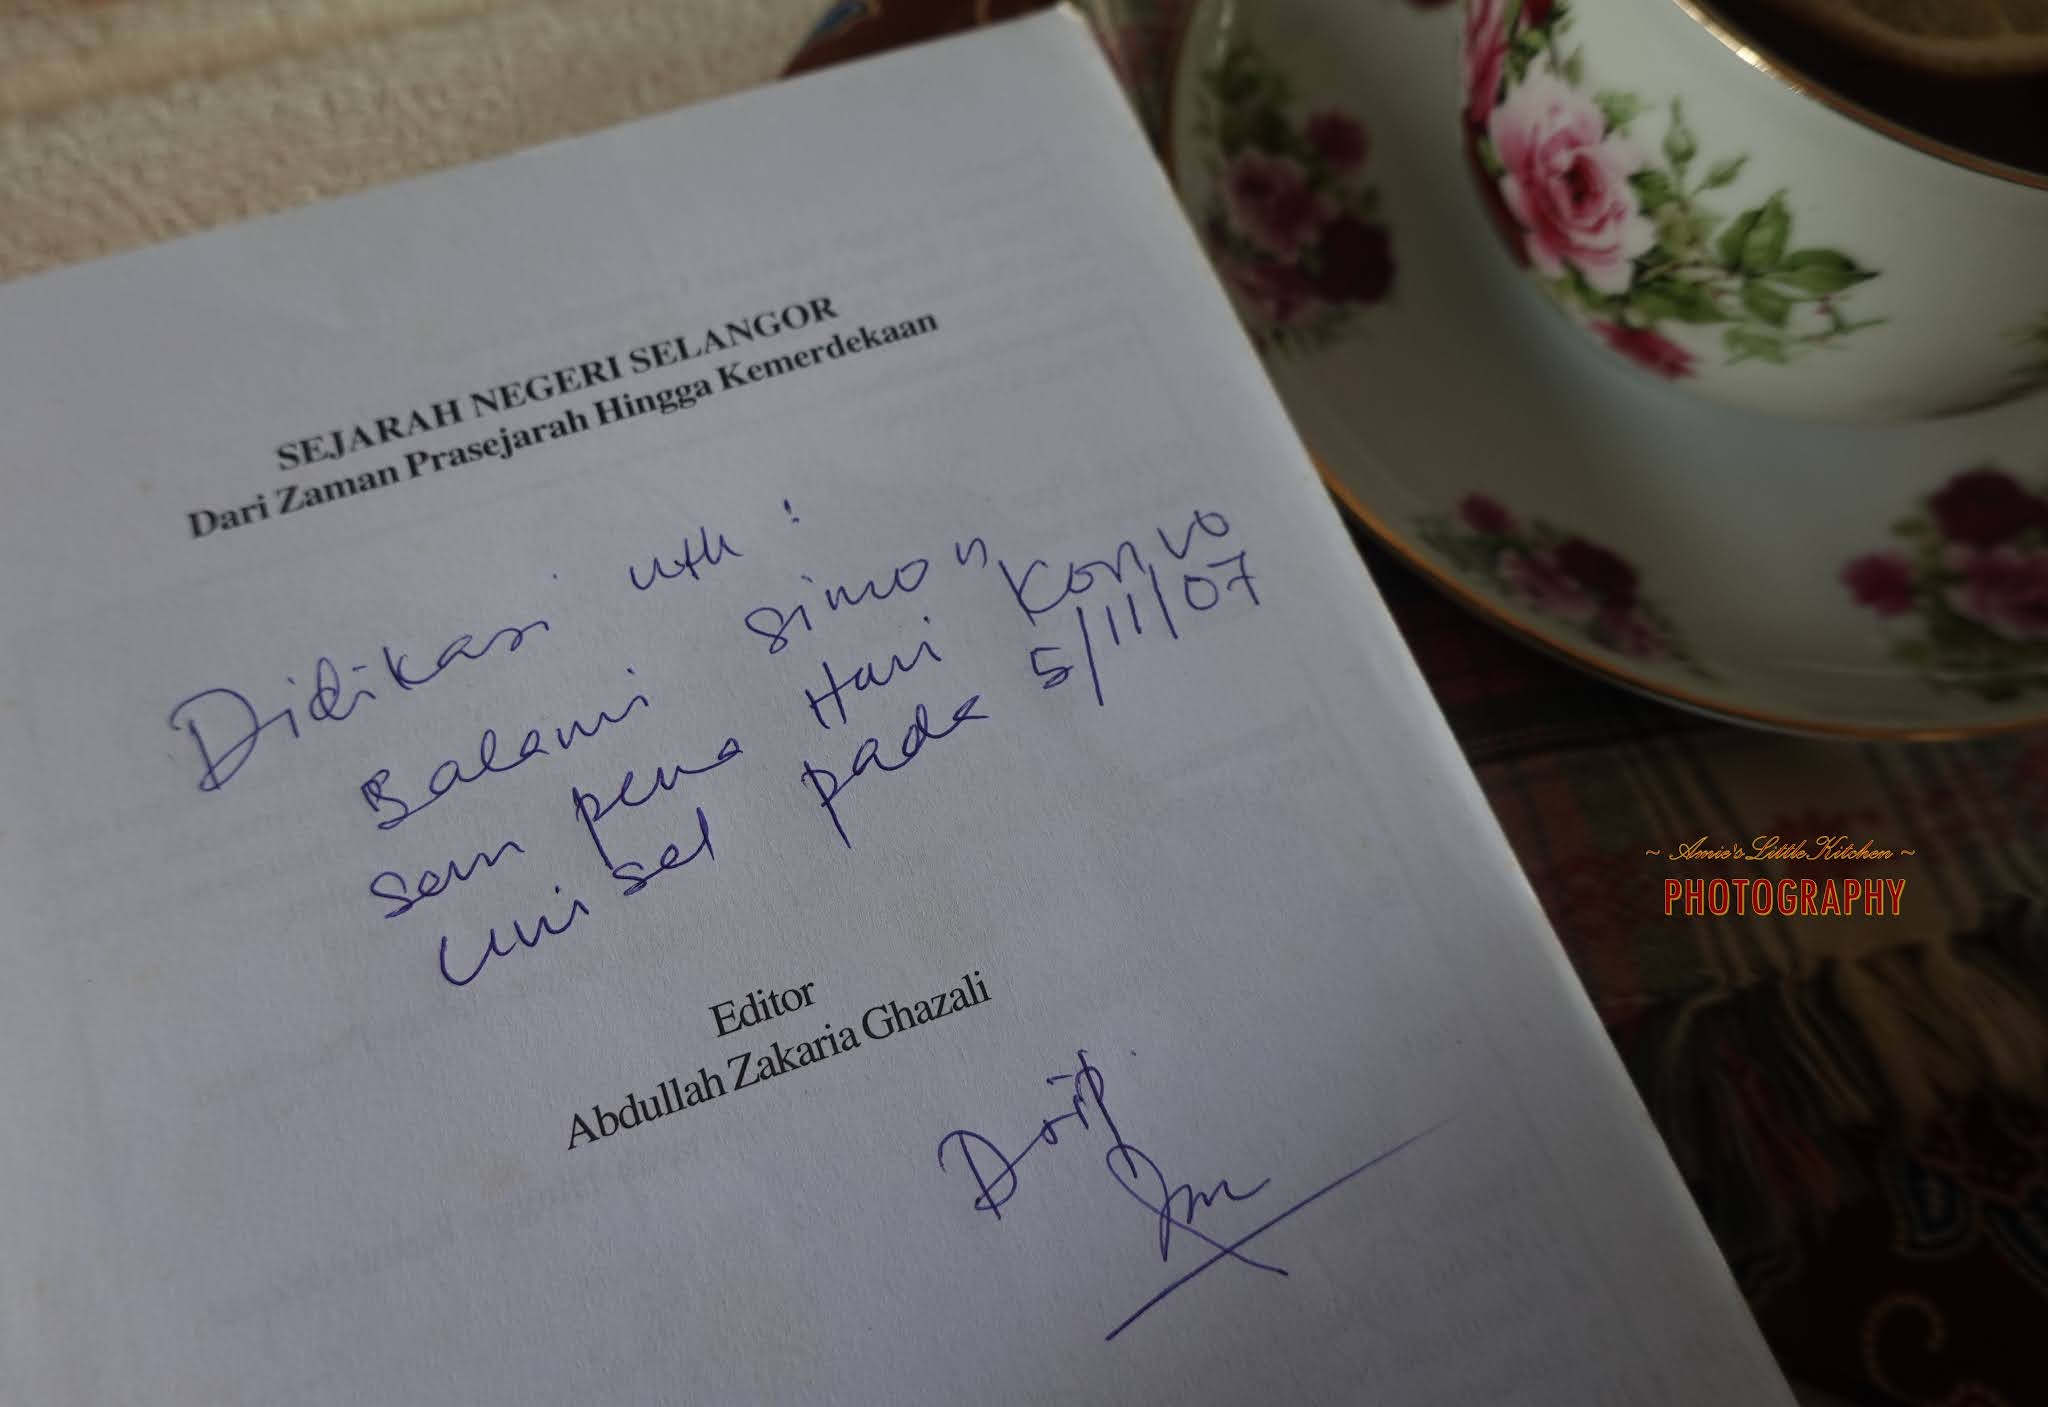 SEJARAH NEGERI SELANGOR
Dari Zaman Prasejarah Hingga Kemerdekaan
Didikasi utk :
Balami Simon
sempena Hari Konvo
Unisel pada 5/11/07
Editor
Abdullah Zakaria Ghazali
~ Amie's Little Kitchen ~
PHOTOGRAPHY